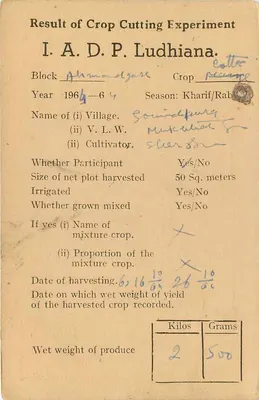 Result of Crop Cutting Experiment
I. A. D. P. Ludhiana.
Block Ahmadgarh Crop Cotton
Year 1964-64 Season: Kharif/Rabi
Name of (i) Village. Gobindpura
(ii) V. L. W.
(ii) Cultivator.
Whether Participant Yes/No
Size of net plot harvested 50 Sq. meters
Irrigated Yes/No
Whether grown mixed Yes/No
If yes (i) Name of
mixture crop. ×
(ii) Proportion of the
mixture crop. ×
Date of harvesting.
Date on which wet weight of yield
of the harvested crop recorded.
Kilos Grams
Wet weight of produce 2 500